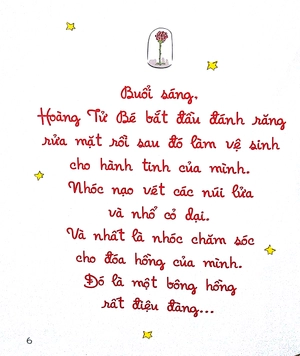 Buổi sáng,
Hoàng Tử Bé bắt đầu đánh răng
rửa mặt rồi sau đó làm vệ sinh
cho hành tinh của mình.
Nhóc nạo vét các núi lửa
và nhổ cỏ dại.
Và nhất là nhóc chăm sóc
cho đóa hồng của mình.
Đó là một bông hồng
rất điệu đàng...
6